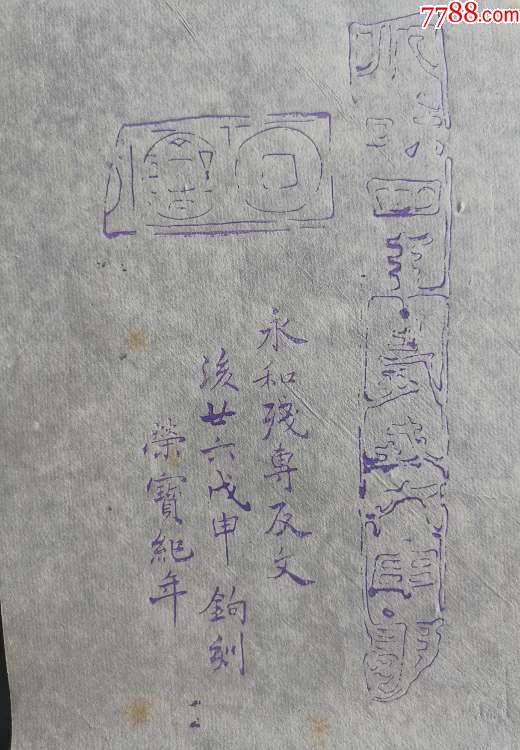 7788.com
永和四年
永和殘專反文
後廿六戊申 鉤刻
榮寶紀年